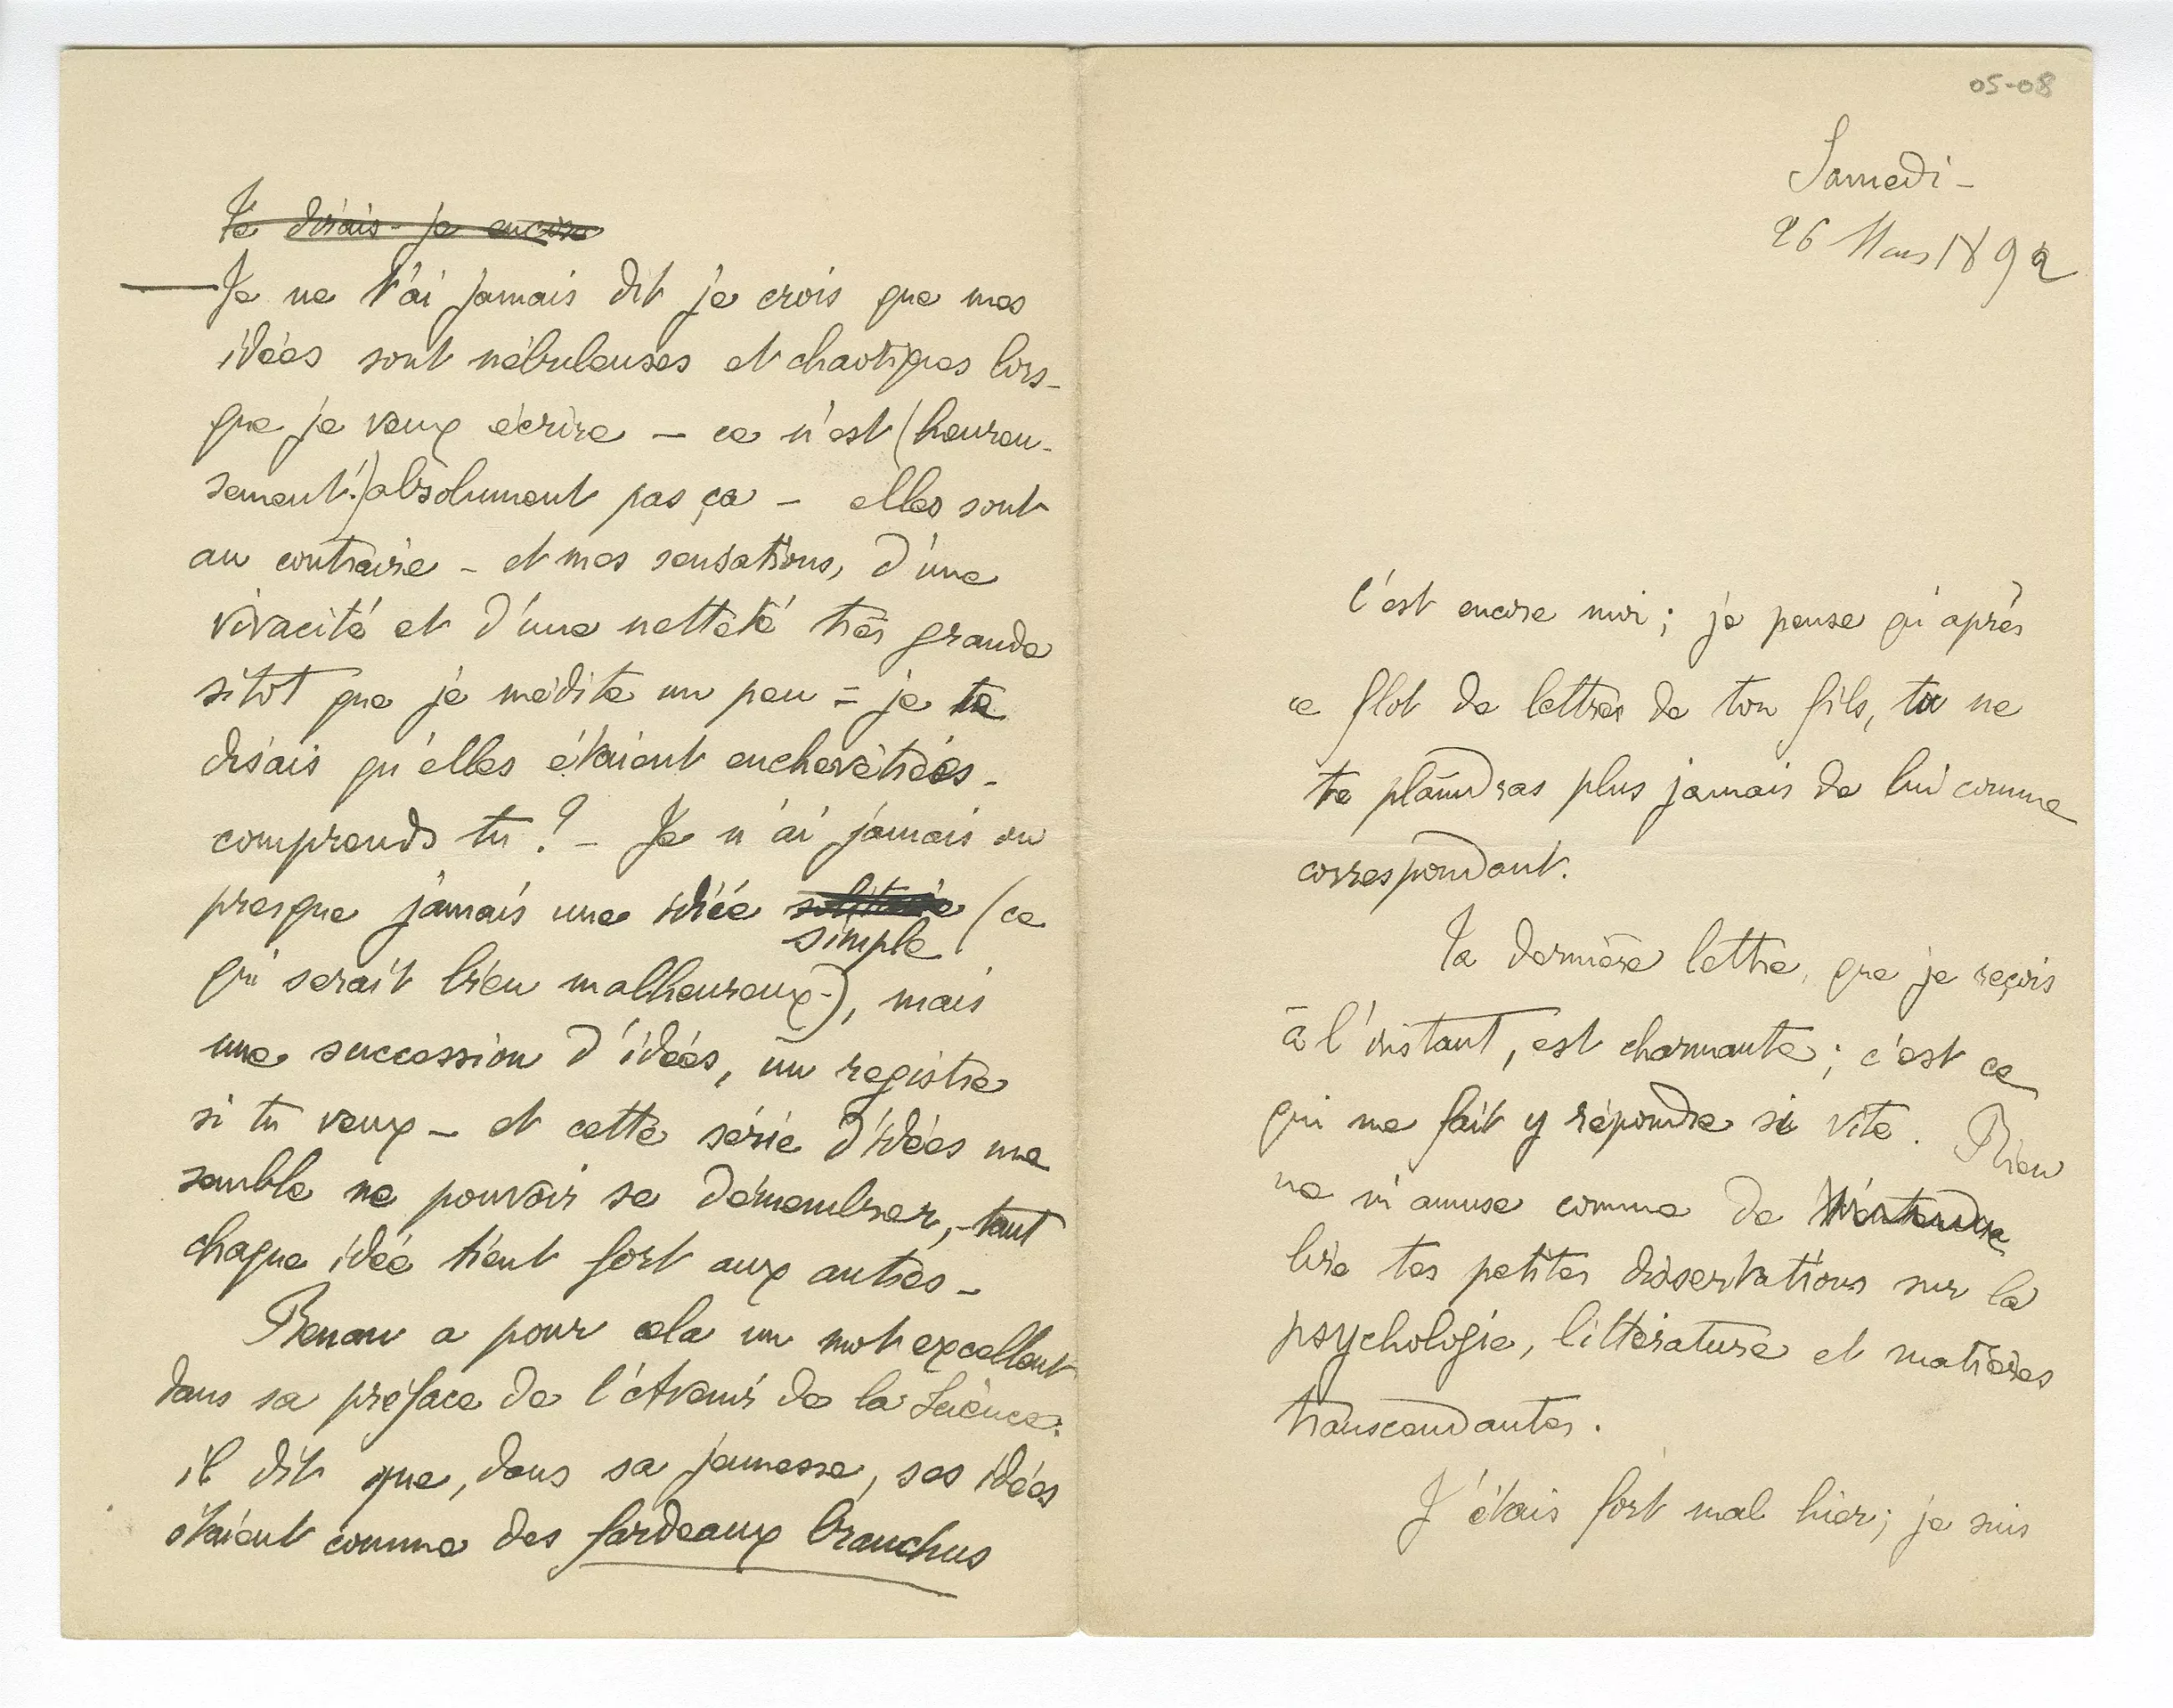 Te disais-je encore
— Je ne t'ai jamais dit je crois que mes
idées sont nébuleuses et chaotiques lors-
que je veux écrire – ce n'est (heureu-
sement!) absolument pas ça – elles sont
au contraire – et mes sensations, d'une
vivacité et d'une netteté très grande
sitot que je médite un peu = je te
disais qu'elles étaient enchevêtrées –
comprends tu ? – Je n'ai jamais ou
presque jamais une idée solitaire (ce
simple
qui serait bien malheureux –), mais
une succession d'idées, un registre
si tu veux – et cette série d'idées me
semble ne pouvoir se démembrer, – tant
chaque idée tient fort aux autres –
Renan a pour cela un mot excellent
dans sa préface de l'Avenir de la Science:
il dit que, dans sa jeunesse, ses idées
étaient comme des fardeaux branchus
05-08
Samedi –
26 Mars 1892
C'est encore moi ; je pense qu'après
ce flot de lettres de ton fils, tu ne
te plaindras plus jamais de lui comme
correspondant.
Ta dernière lettre, que je reçois
à l'instant, est charmante ; c'est ce
qui me fait y répondre si vite. Rien
ne m'amuse comme de t'entendre
lire tes petites dissertations sur la
psychologie, littérature et matières
transcendantes.
J'étais fort mal hier ; je suis